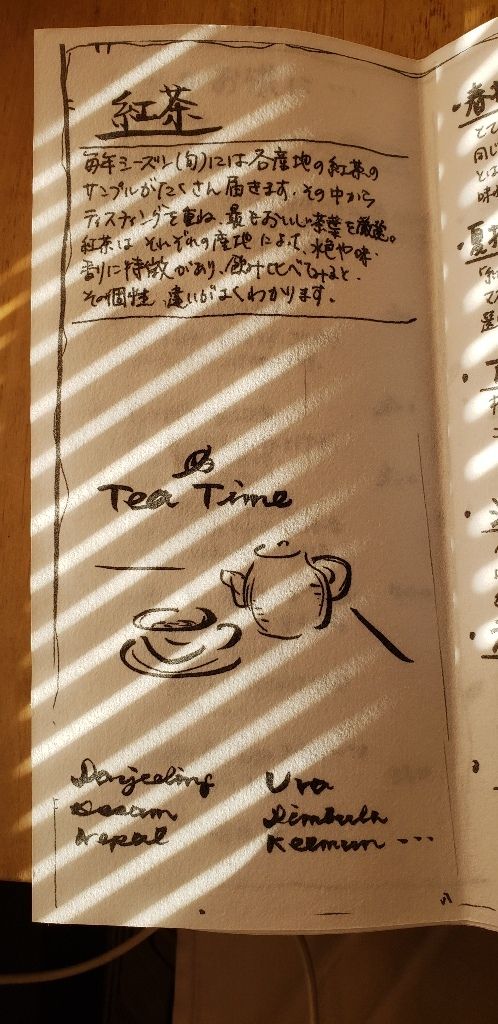 紅茶
毎年シーズン(旬)には各産地の紅茶の
サンプルがたくさん届きます。その中から
テイスティングを重ね、最もおいしい茶葉を厳選。
紅茶はそれぞれの産地によって、水色や味・
香りに特徴があり、飲み比べてみると、
その個性、違いがよくわかります。
Tea Time
Darjeeling
Assam
Nepal
Uva
Dimbula
Keemun ...